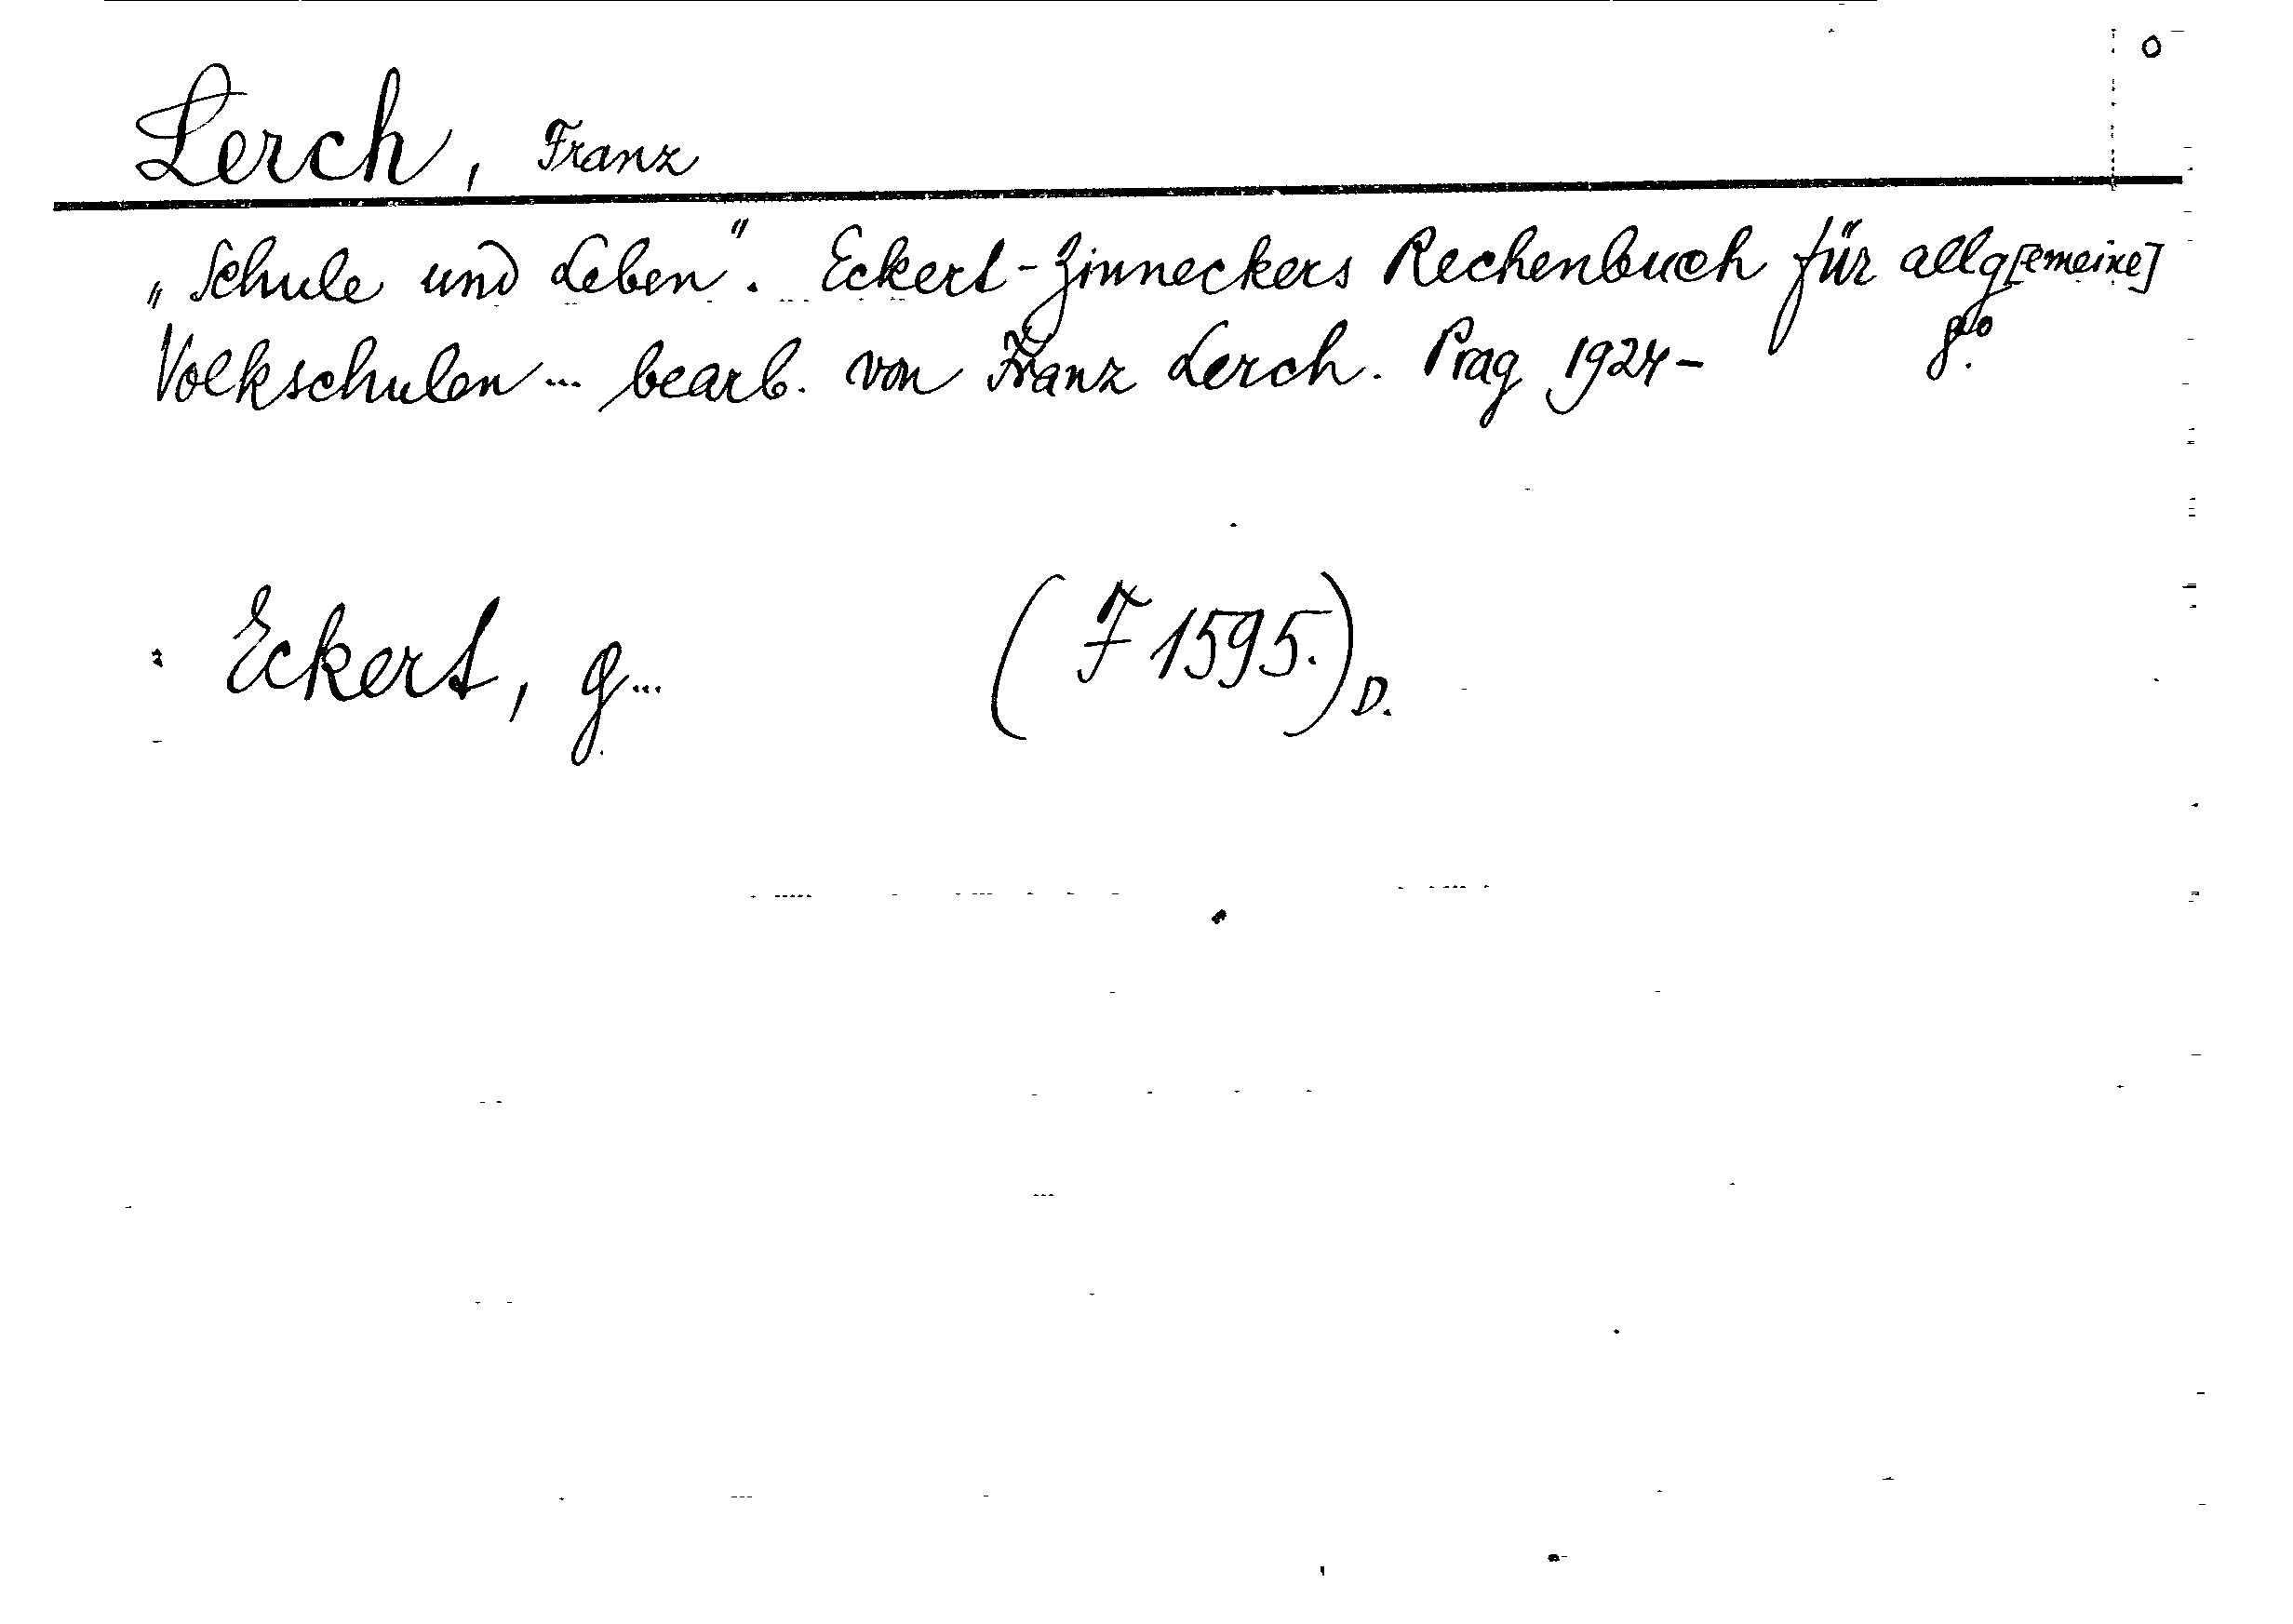 o
Lerch, Franz
„Schule und Leben". Eckert-Zinneckers Rechenbuch für allg[emeine]
Volkschulen ... bearb. von Franz Lerch. Prag 1924- 8°.
Eckert, G... (F 1595.) D.